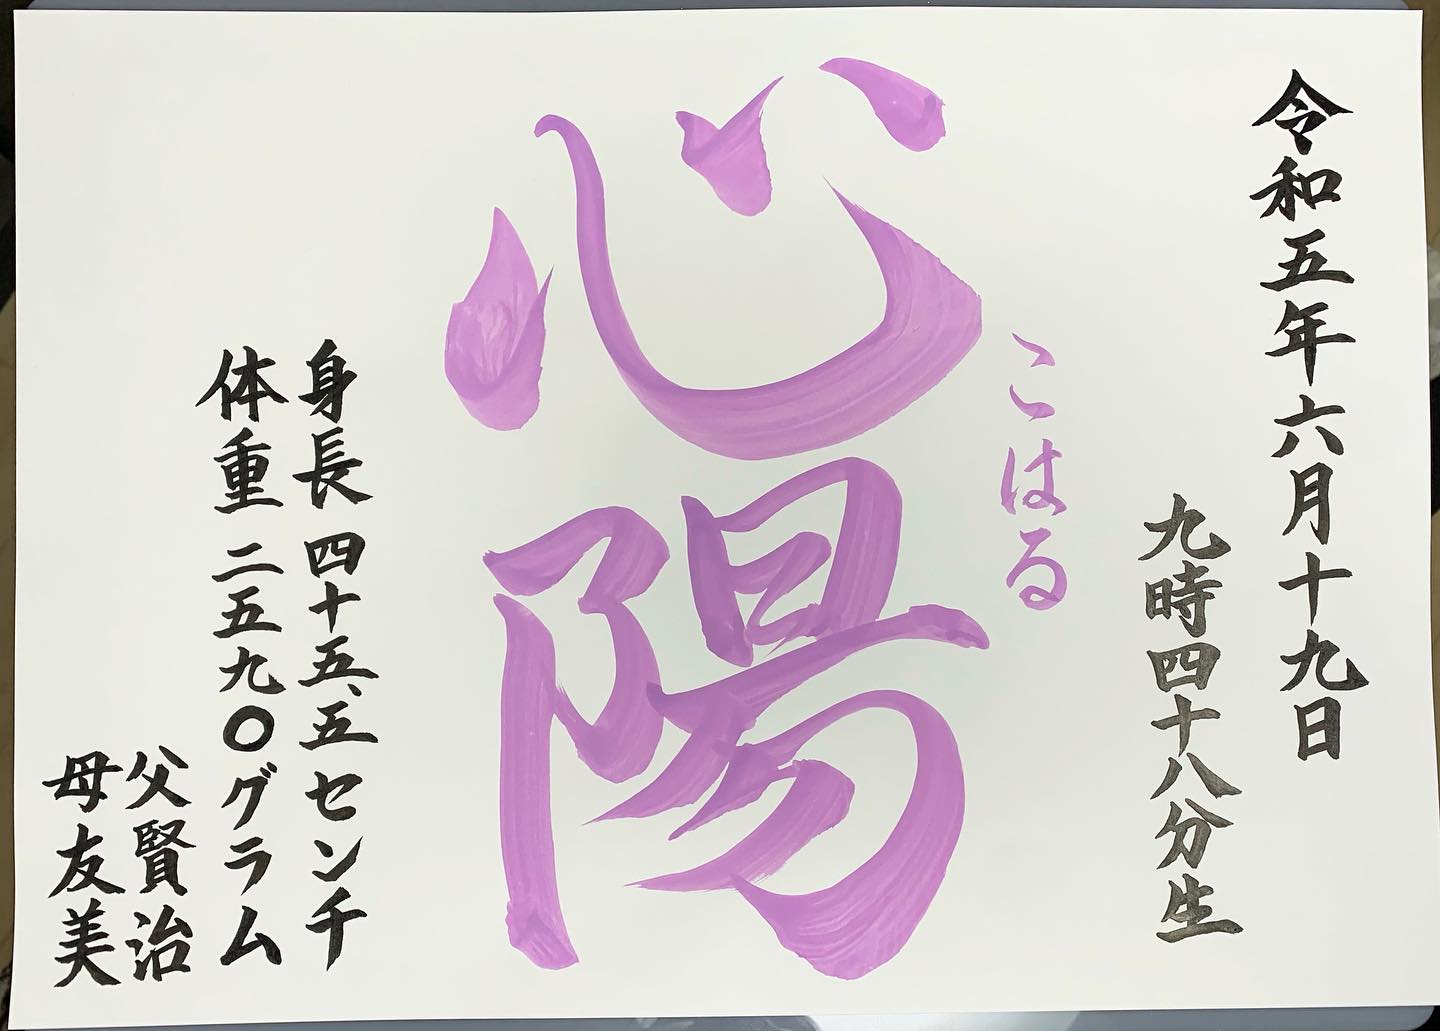 令和五年六月十九日
九時四十八分生
こはる
心陽
身長 四十五、五センチ
体重 二五九〇グラム
父賢治
母友美